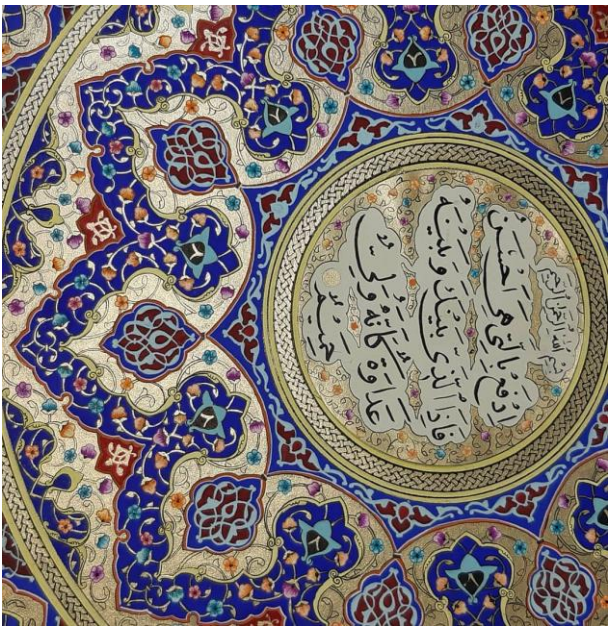 بسم الله الرحمن الرحيم
ادفع بالتي هي احسن
فاذا الذي بينك وبينه
عداوة كأنه ولي
حميم